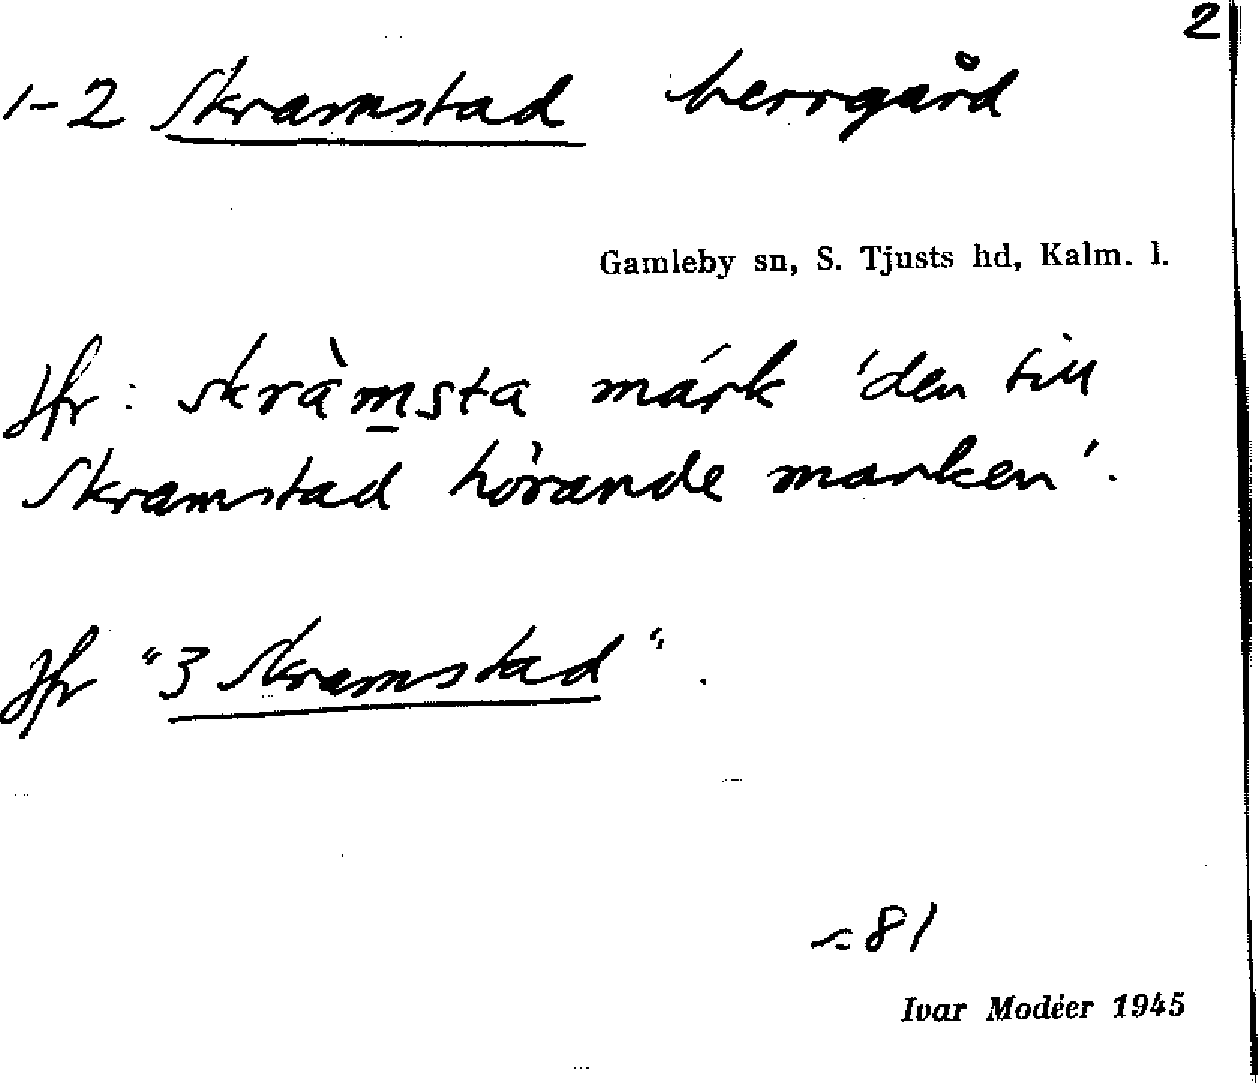 2
1-2 Skramstad herrgård
Gamleby sn, S. Tjusts hd, Kalm. l.
Jfr: skràm̲sta márk 'den till
Skramstad hörande marken'.
Jfr "3 Skramstad".
81
Ivar Modéer 1945